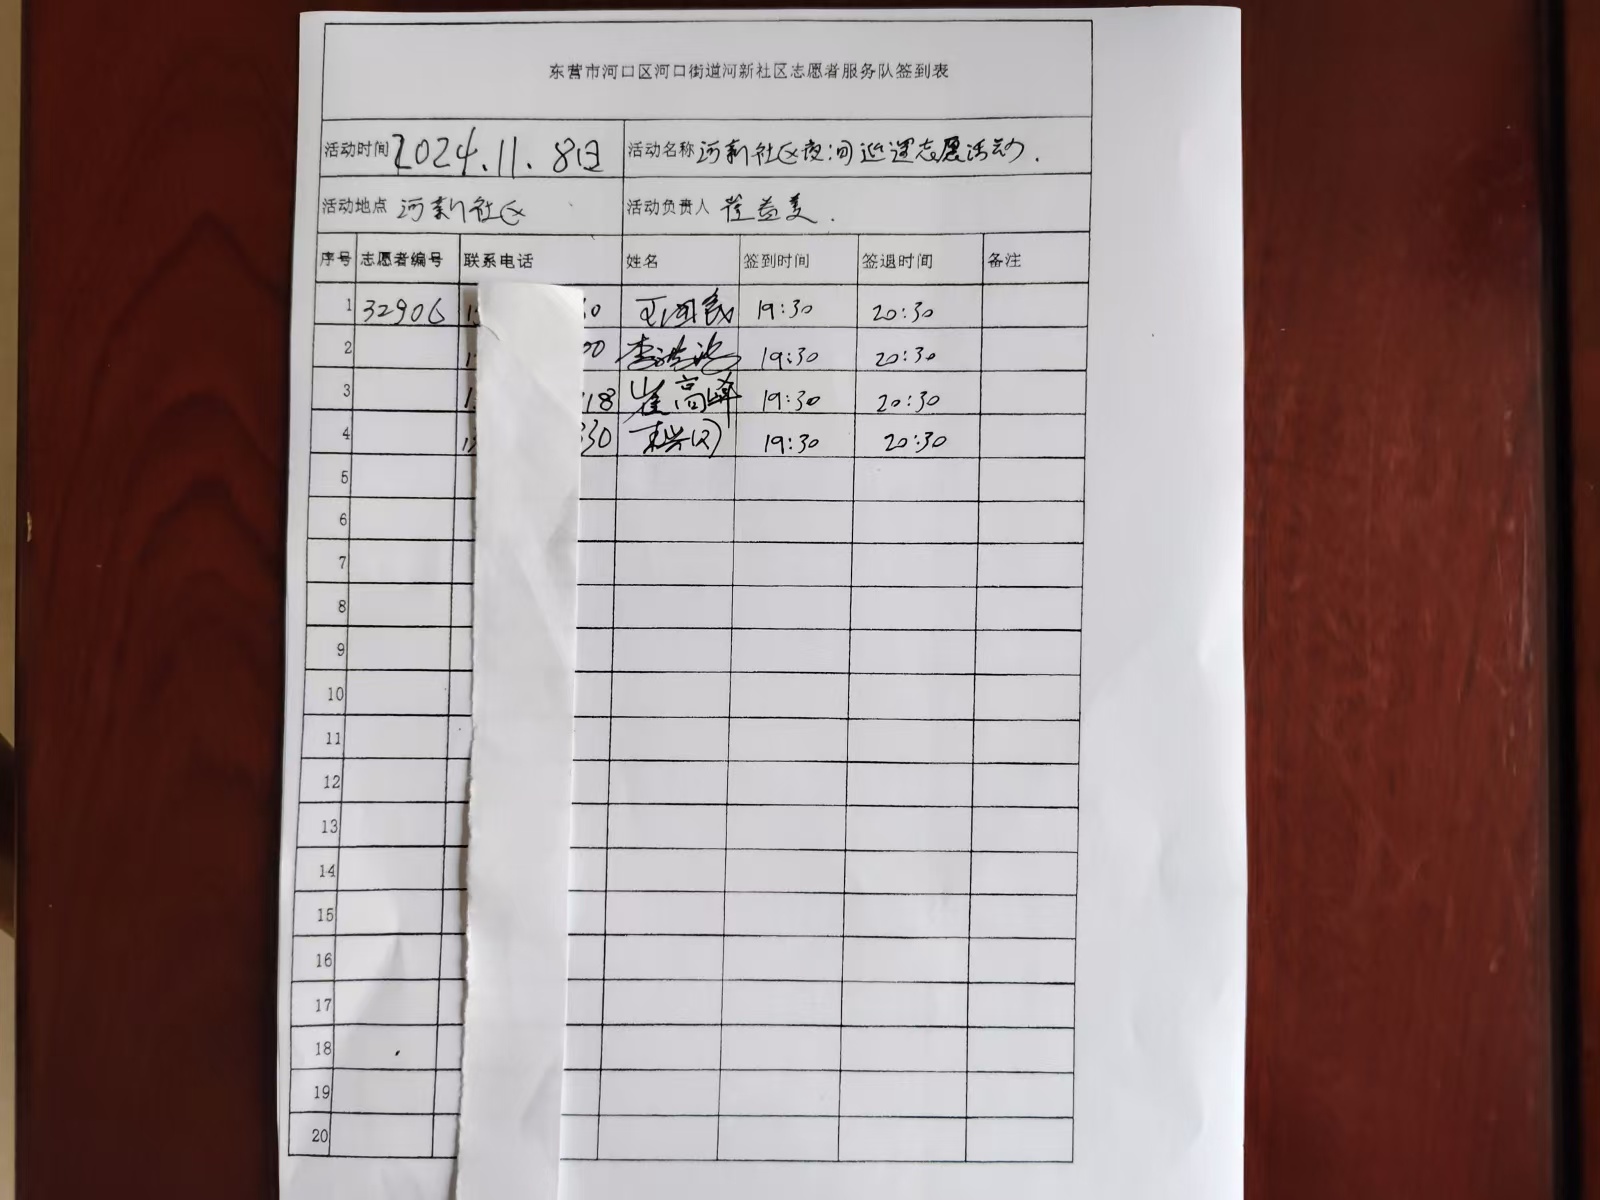 东营市河口区河口街道河新社区志愿者服务队签到表
活动时间 2024.11.8日 活动名称 河新社区夜间巡逻志愿活动.
活动地点 河新社区 活动负责人 崔益美.
序号 志愿者编号 联系电话 姓名 签到时间 签退时间 备注
1 32906 19:30 20:30
2 00 19:30 20:30
3 18 崔高峰 19:30 20:30
4 330 19:30 20:30
5
6
7
8
9
10
11
12
13
14
15
16
17
18
19
20